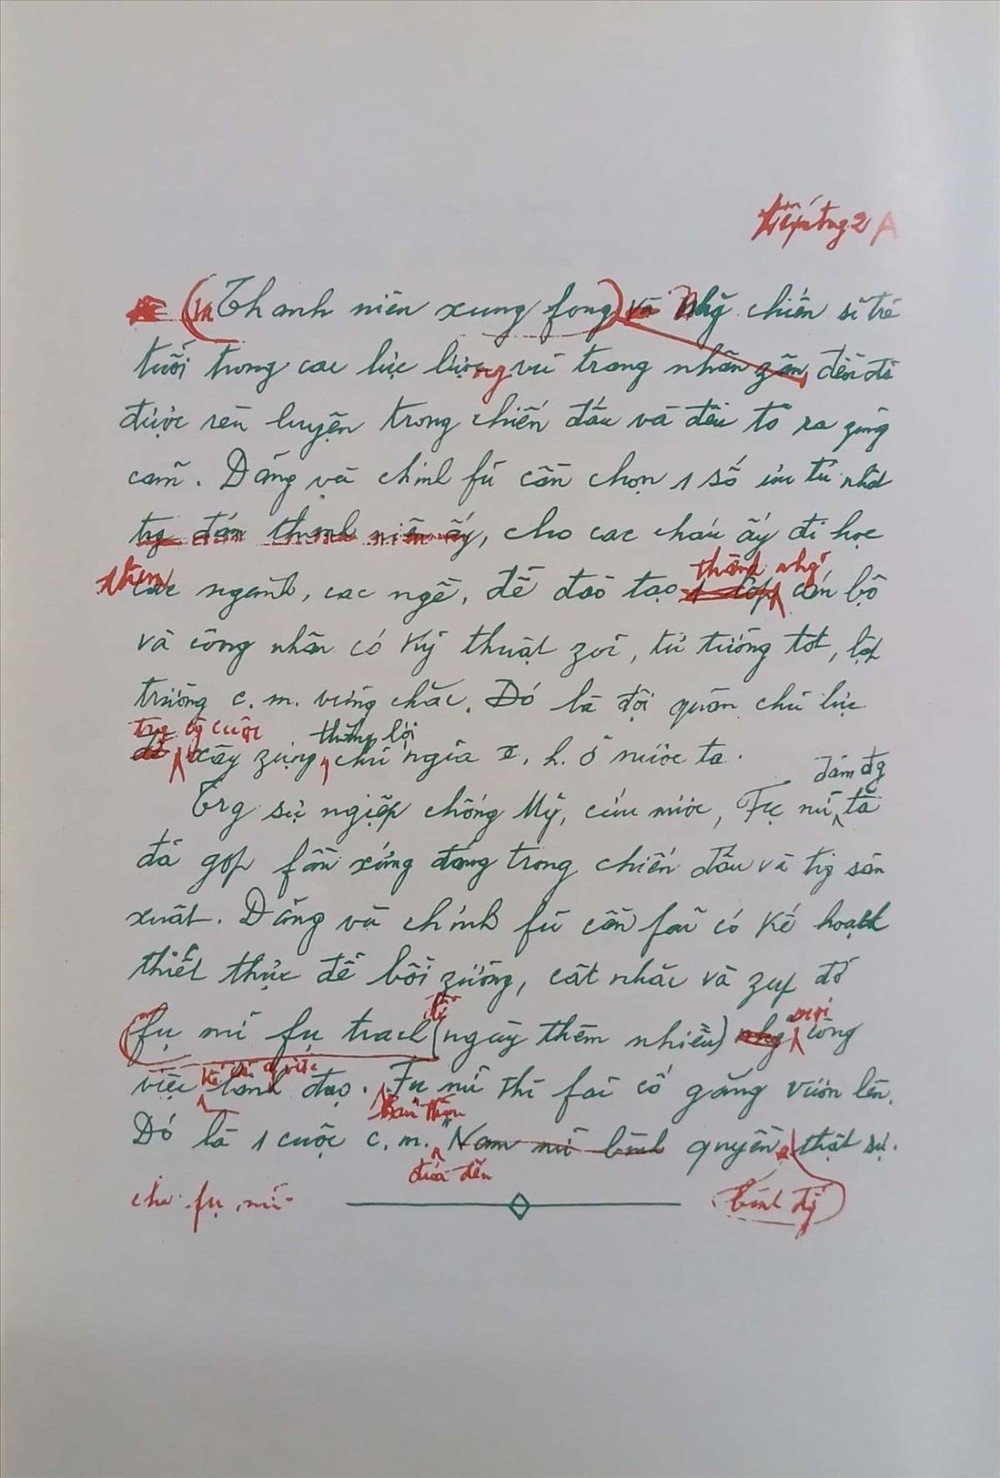 tiếp trg 2 A
(là Thanh niên xung fong) và Nhg chiến sĩ trẻ
tuổi trong các lực lượng vũ trang nhân zân, đều đã
được rèn luyện trong chiến đấu và đều tỏ ra zũng
cảm. Đảng và chính fủ cần chọn 1 số ưu tú nhất
trg đám thanh niên ấy, cho các cháu ấy đi học
thêm các ngành, các ngề, để đào tạo thành nhg cán bộ
và công nhân có kỹ thuật zỏi, tư tưởng tốt, lập
trường c.m. vững chắc. Đó là đội quân chủ lực
trg công cuộc thắng lợi
để xây zựng chủ ngĩa x.h. ở nước ta.
đảm đg
Trg sự ngiệp chống Mỹ, cứu nước, Fụ nữ ta
đã góp fần xứng đáng trong chiến đấu và trg sản
xuất. Đảng và chính fủ cần fải có kế hoạch
thiết thực để bồi zưỡng, cất nhắc và zúp đỡ
để mọi
fụ nữ fụ trách (ngày thêm nhiều) nhg công
việc kể cả cviệc lãnh đạo. Fụ nữ thì fải cố gắng vươn lên.
Bản thân
Đó là 1 cuộc c.m. Nam nữ bình quyền thật sự.
đưa đến
cho fụ nữ bình đg